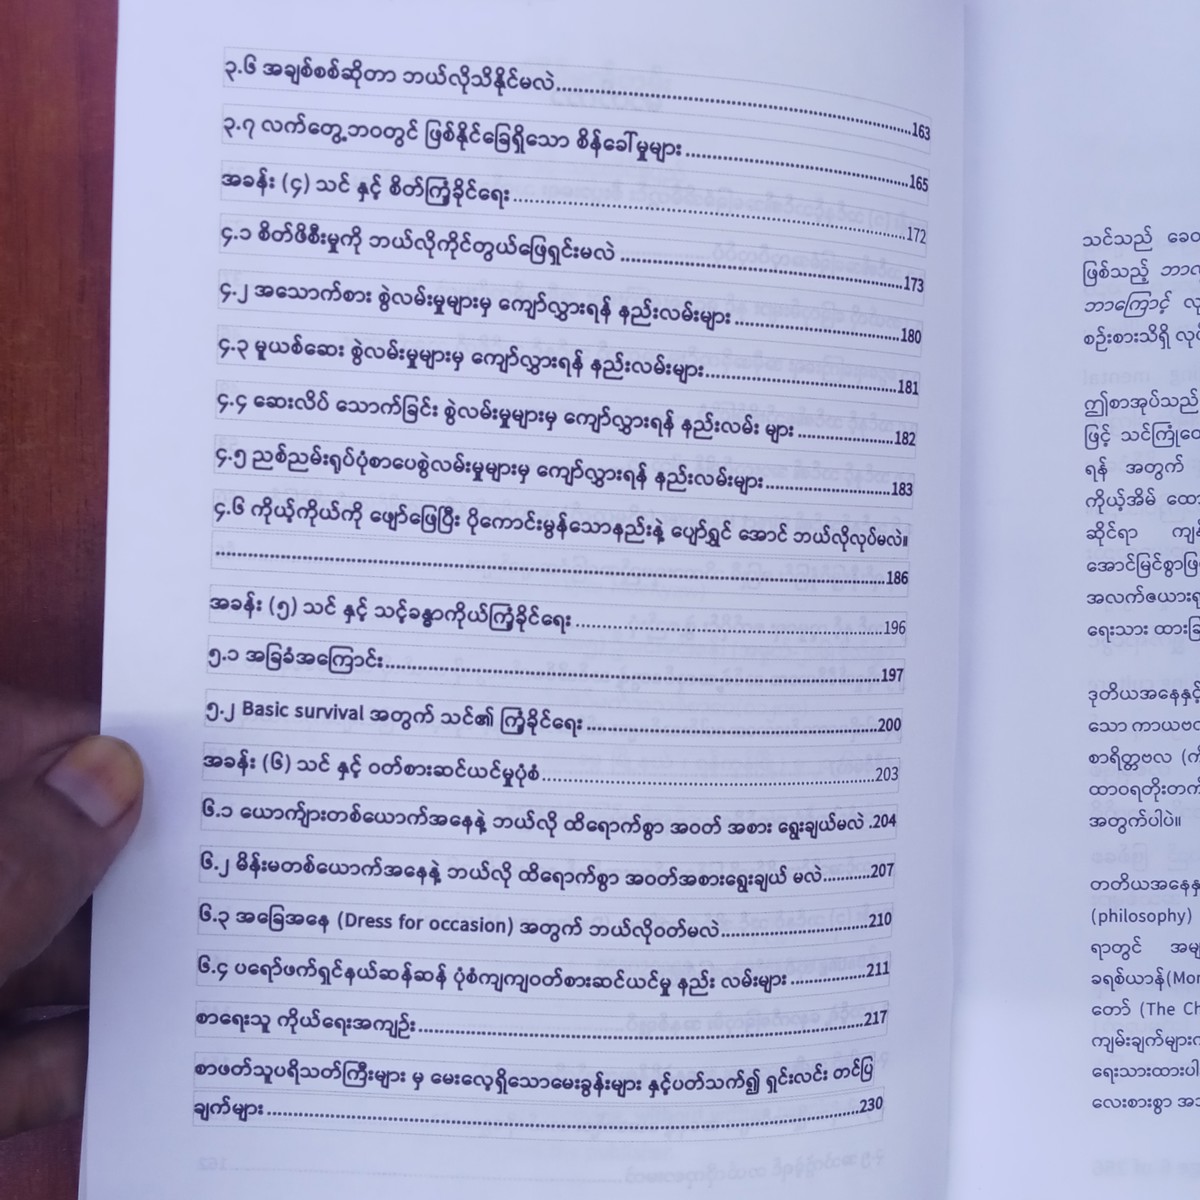 ၃.၆ အချစ်စစ်ဆိုတာ ဘယ်လိုသိနိုင်မလဲ..............................163
၃.၇ လက်တွေ့ဘဝတွင် ဖြစ်နိုင်ခြေရှိသော စိန်ခေါ်မှုများ..............................165
အခန်း (၄) သင် နှင့် စိတ်ကြံ့ခိုင်ရေး..............................172
၄.၁ စိတ်ဖိစီးမှုကို ဘယ်လိုကိုင်တွယ်ဖြေရှင်းမလဲ..............................173
၄.၂ အသောက်စား စွဲလမ်းမှုများမှ ကျော်လွှားရန် နည်းလမ်းများ..............................180
၄.၃ မူယစ်ဆေး စွဲလမ်းမှုများမှ ကျော်လွှားရန် နည်းလမ်းများ..............................181
၄.၄ ဆေးလိပ် သောက်ခြင်း စွဲလမ်းမှုများမှ ကျော်လွှားရန် နည်းလမ်း များ....................182
၄.၅ ညစ်ညမ်းရုပ်ပုံစာပေစွဲလမ်းမှုများမှ ကျော်လွှားရန် နည်းလမ်းများ....................183
၄.၆ ကိုယ့်ကိုယ်ကို ဖျော်ဖြေပြီး ပိုကောင်းမွန်သောနည်းနဲ့ ပျော်ရွှင် အောင် ဘယ်လိုလုပ်မလဲ။
..............................186
အခန်း (၅) သင် နှင့် သင့်ခန္ဓာကိုယ်ကြံ့ခိုင်ရေး..............................196
၅.၁ အခြခံအကြောင်း..............................197
၅.၂ Basic survival အတွက် သင်၏ ကြံ့ခိုင်ရေး..............................200
အခန်း (၆) သင် နှင့် ဝတ်စားဆင်ယင်မှုပုံစံ..............................203
၆.၁ ယောက်ျားတစ်ယောက်အနေနဲ့ ဘယ်လို ထိရောက်စွာ အဝတ် အစား ရွေးချယ်မလဲ .204
၆.၂ မိန်းမတစ်ယောက်အနေနဲ့ ဘယ်လို ထိရောက်စွာ အဝတ်အစားရွေးချယ် မလဲ...........207
၆.၃ အခြေအနေ (Dress for occasion) အတွက် ဘယ်လိုဝတ်မလဲ..............................210
၆.၄ ပရော်ဖက်ရှင်နယ်ဆန်ဆန် ပုံစံကျကျဝတ်စားဆင်ယင်မှု နည်း လမ်းများ...............211
စာရေးသူ ကိုယ်ရေးအကျဉ်း..............................217
စာဖတ်သူပရိသတ်ကြီးများ မှ မေးလေ့ရှိသောမေးခွန်းများ နှင့်ပတ်သက်၍ ရှင်းလင်း တင်ပြ
ချက်များ..............................230
သင်သည်
ဖြစ်သည့်
ဘာကြောင့်
စဉ်းစားသိရှိ
ဤစာအုပ်သည်
ဖြင့်
ရန် အတွက်
ကိုယ့်အိမ်
ဆိုင်ရာ
အောင်မြင်စွာဖြ
အလက်ဇယား
ရေးသား
ဒုတိယအနေနှင့်
သော
စာရိတ္တဗလ
အတွက်ပါပဲ။
တတိယအနေ
(philosophy)
ရာတွင်
ခရစ်ယာန်
တော် (The
ကျမ်းချက်များ
ရေးသားထားပါ
လေးစားစွာ